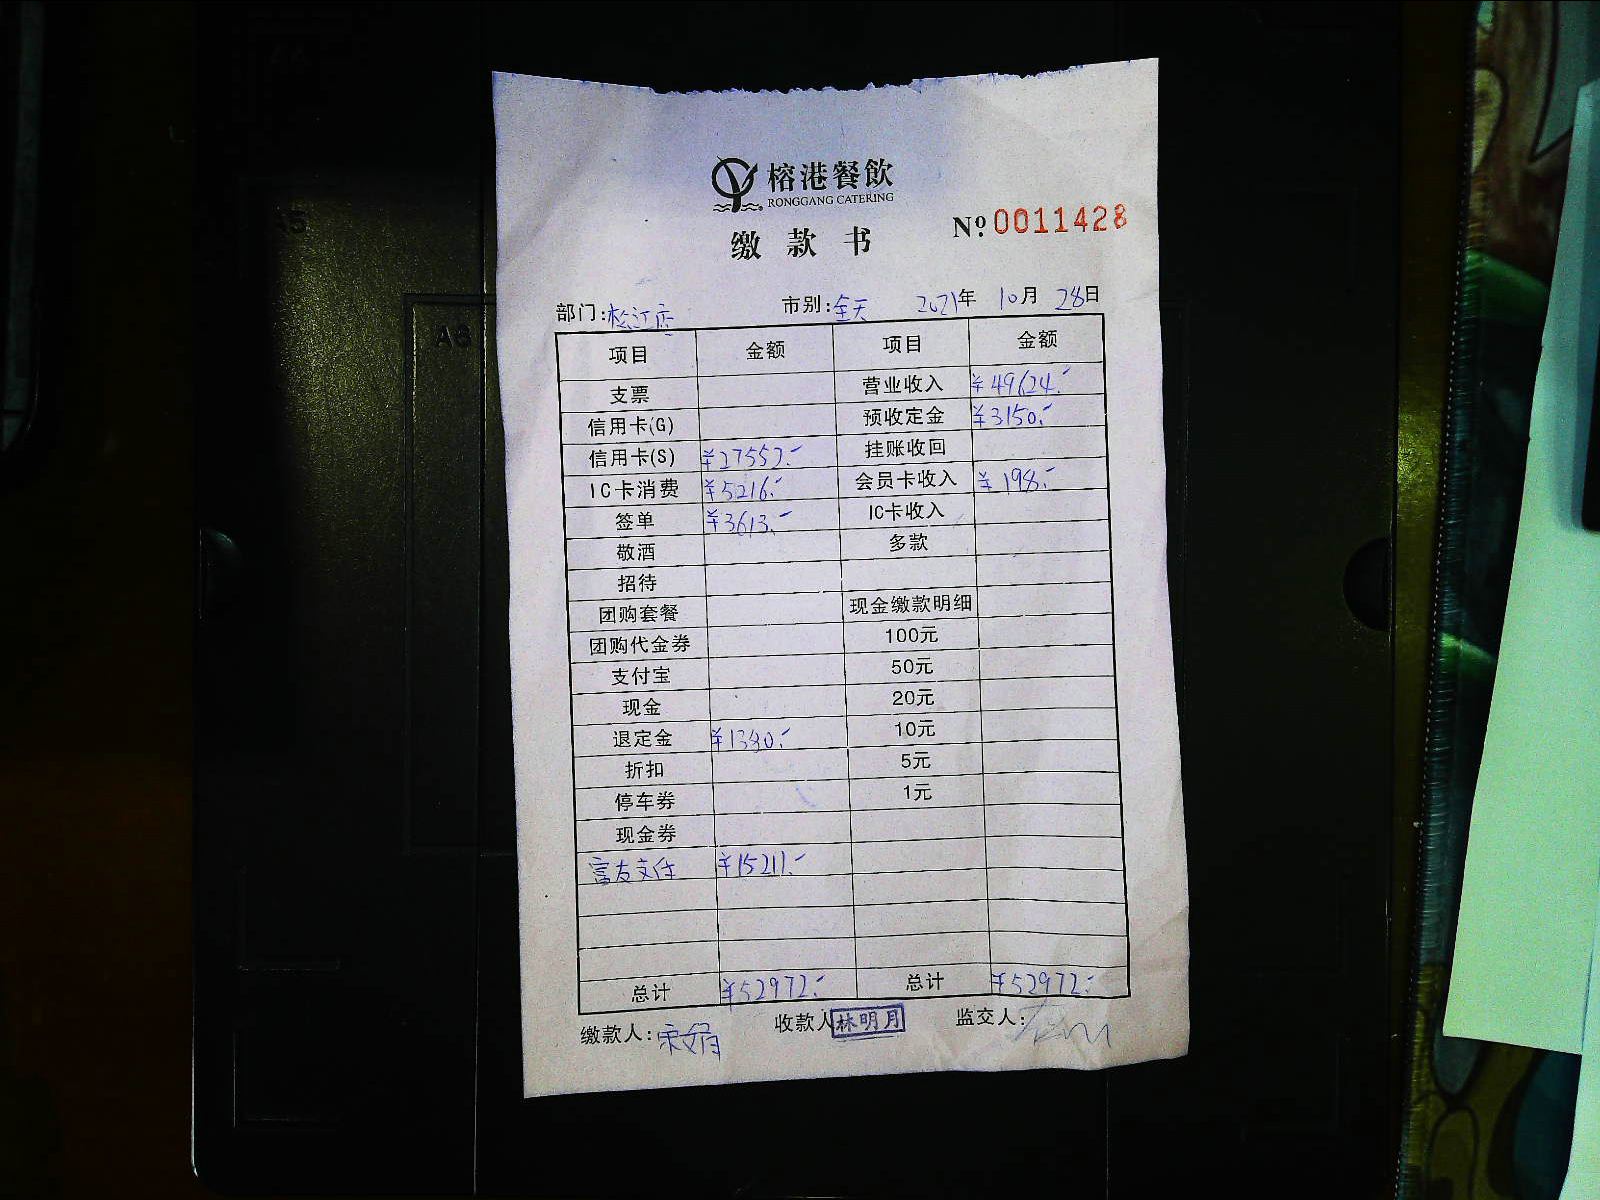 榕港餐飲
RONGGANG CATERING
缴款书
Nº 0011428
部门:松江店 市别:全天 2021年 10月 28日
项目 金额 项目 金额
支票 营业收入 ¥49624.-
信用卡(G) 预收定金 ¥3150.-
信用卡(S) ¥27552.- 挂账收回
IC卡消费 ¥5216.- 会员卡收入 ¥198.-
签单 ¥3613.- IC卡收入
敬酒 多款
招待
团购套餐 现金缴款明细
团购代金券 100元
支付宝 50元
现金 20元
退定金 ¥1380.- 10元
折扣 5元
停车券 1元
现金券
富友支付 ¥15211.-
总计 ¥52972.- 总计 ¥52972.-
缴款人: 收款人 林明月 监交人:
A5
A6